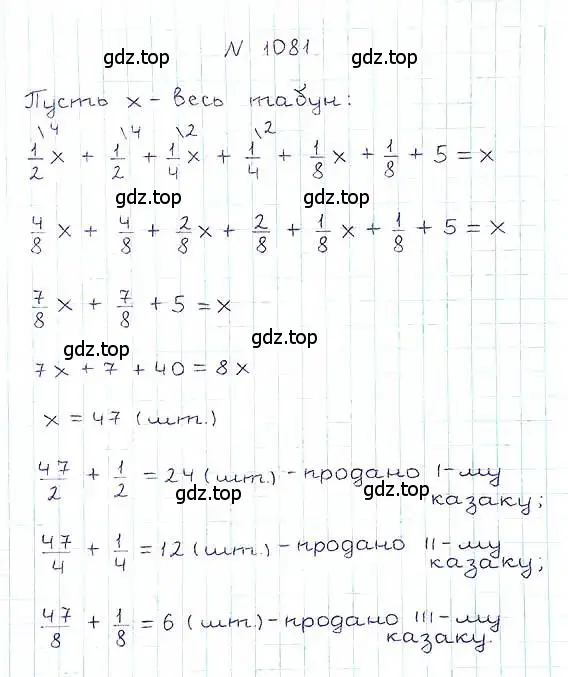 gdz.top
N 1081
gdz.top
Пусть x - весь табун:
\4 \4 \2 \2
1/2 x + 1/2 + 1/4 x + 1/4 + 1/8 x + 1/8 + 5 = x
gdz.top gdz.top
4/8 x + 4/8 + 2/8 x + 2/8 + 1/8 x + 1/8 + 5 = x
7/8 x + 7/8 + 5 = x
gdz.top
gdz.top
7x + 7 + 40 = 8x
x = 47 (шт.)
47/2 + 1/2 = 24 (шт.) - продано I-му
gdz.top gdz.top
казаку;
47/4 + 1/4 = 12 (шт.) - продано II-му
казаку;
47/8 + 1/8 = 6 (шт.) - продано III-му
казаку.